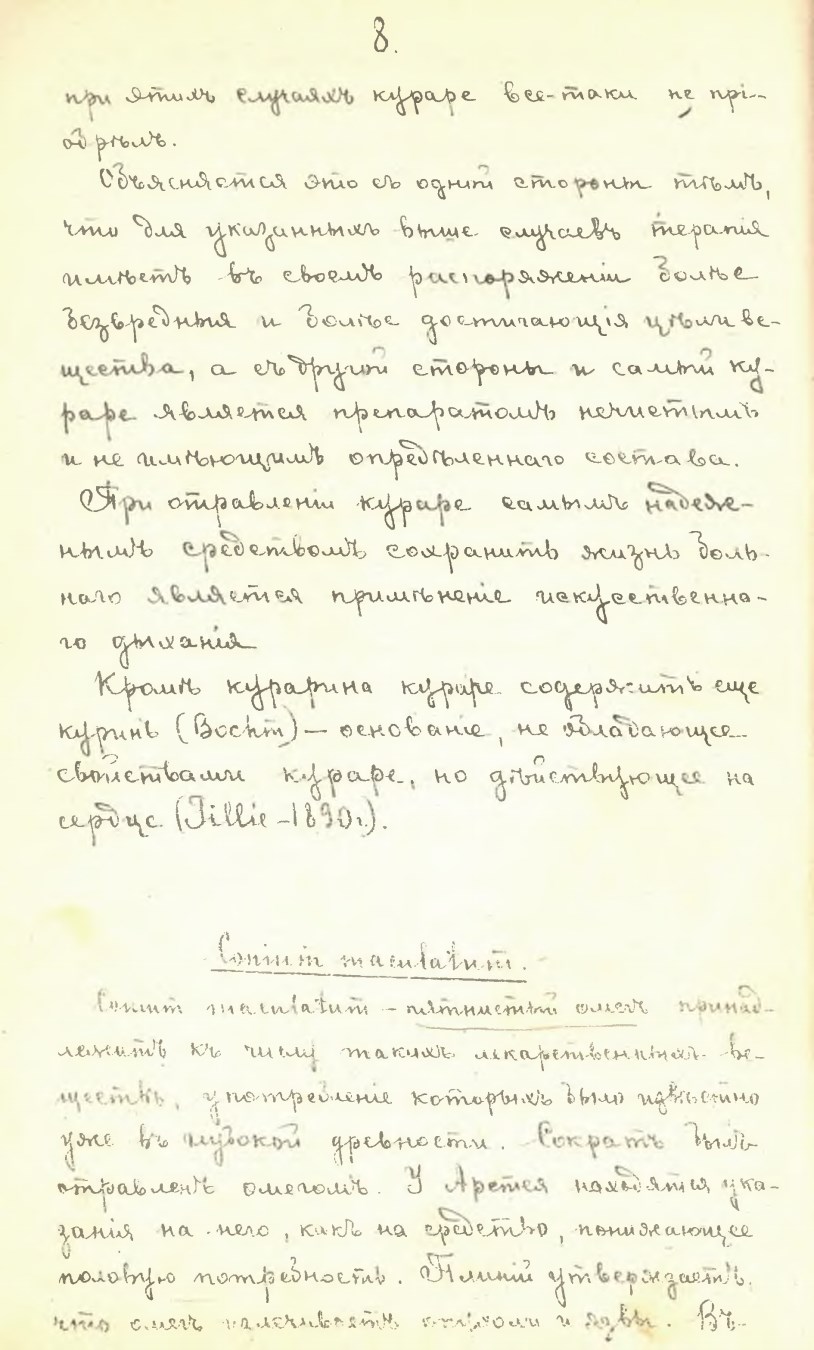 8.
при этихъ случаяхъ кураре все-таки не прі-
обрѣлъ.
Объясняется это съ одной стороны тѣмъ,
что для указанныхъ выше случаевъ терапія
имѣетъ въ своемъ распоряженіи болѣе
безвредныя и болѣе достигающія цѣли ве-
щества, а съ другой стороны и самый ку-
раре является препаратомъ нечистымъ
и не имѣющимъ опредѣленнаго состава.
При отравленіи кураре самымъ надеж-
нымъ средствомъ сохранить жизнь боль-
ного является примѣненіе искусственна-
го дыханія
Кромѣ курарина кураре содержитъ еще
куринъ (Boehm) — основаніе, не обладающее
свойствами кураре, но дѣйствующее на
сердце. (Tillie - 1890г.).
Conium maculatum.
Conium maculatum - пятнистый омегъ принад-
лежитъ къ числу такихъ лекарственныхъ ве-
ществъ, употребленіе которыхъ было извѣстно
уже въ глубокой древности. Сократъ былъ
отравленъ омегомъ. У Аретея находятся ука-
занія на него, какъ на средство, понижающее
половую потребность. Плиній утверждаетъ,
что омегъ излечиваетъ опухоли и язвы. Въ